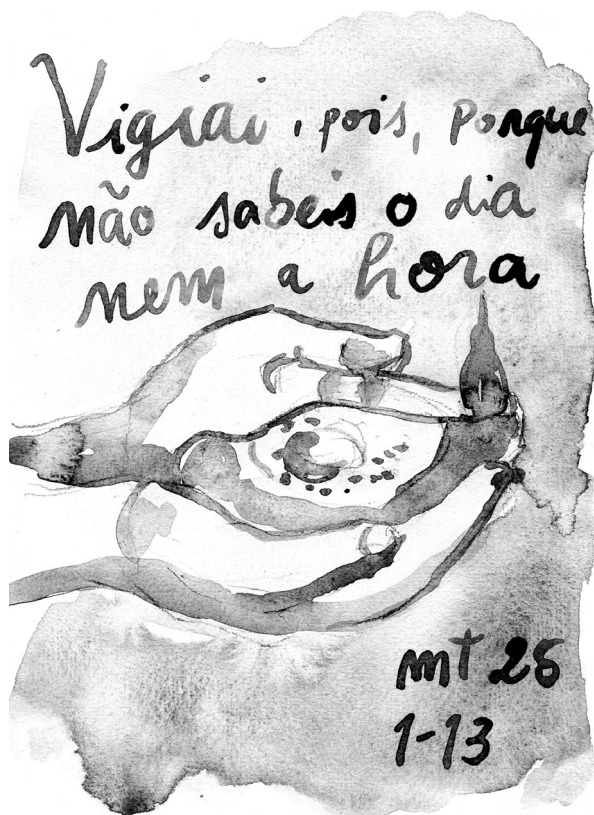 Vigiai, pois, porque
não sabeis o dia
nem a hora
mt 25
1-13